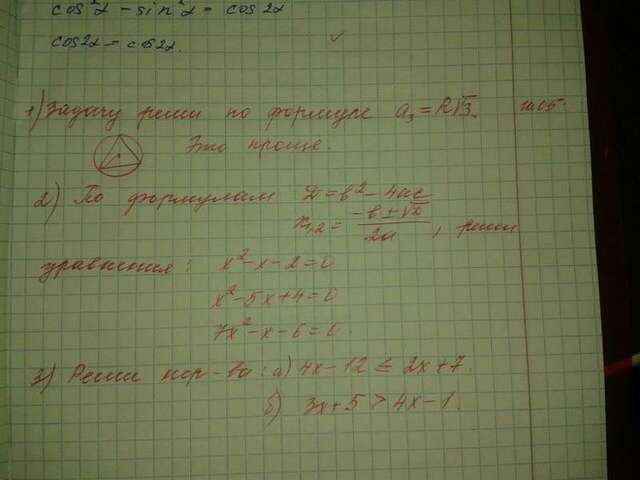 cos²α - sin²α = cos2α
cos2α = cos2α.
1) Задачу реши по формуле a₃ = R√3. 10.05.
Это проще.
2) По формулам D = b² - 4ac
x₁,₂ = (-b ± √D)/2a, реши
уравнения: x² - x - 2 = 0
x² - 5x + 4 = 0
7x² - x - 6 = 0.
3) Реши нер-ва: а) 4x - 12 ≤ 2x + 7.
б) 3x + 5 > 4x - 1.